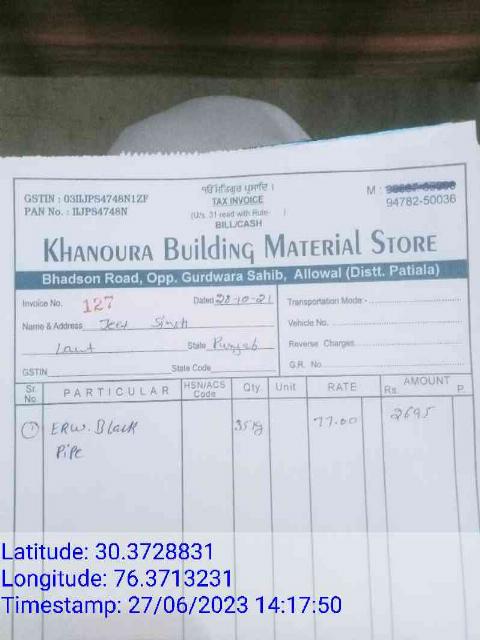 GSTIN : 03ILJPS4748N1ZF
PAN No. : ILJPS4748N
ੴ ਸਤਿਗੁਰ ਪ੍ਰਸਾਦਿ ।
TAX INVOICE
(U/s. 31 read with Rule- )
BILL/CASH
M :
94782-50036
KHANOURA BUILDING MATERIAL STORE
Bhadson Road, Opp. Gurdwara Sahib, Allowal (Distt. Patiala)
Invoice No. 127 Dated 28-10-21
Name & Address Singh
State Punjab
GSTIN State Code
Transportation Mode:-
Vehicle No.
Reverse Charges
G.R. No.
Sr. No. PARTICULAR HSN/ACS Code Qty. Unit RATE AMOUNT Rs. P.
1 ERW. Black 35 kg 77.00 2695
Pipe
Latitude: 30.3728831
Longitude: 76.3713231
Timestamp: 27/06/2023 14:17:50